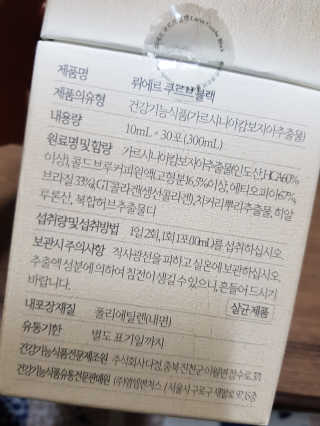 제품명 뤼에르 쿠르브 블랙
제품의유형 건강기능식품(가르시니아캄보지아추출물)
내용량 10mL * 30포 (300mL)
원료명 및 함량 가르시니아캄보지아추출물(인도산), HCA60%
이상), 콜드브루커피원액(고형분16.5%이상, 에티오피아67%,
브라질33%), GT콜라겐(생선콜라겐), 치커리뿌리추출물, 히알
루론산, 복합허브추출물디
섭취량및섭취방법 1일 2회, 1회 1포(10ml)를 섭취하십시오.
보관시주의사항 직사광선을 피하고 실온에 보관하십시오.
추출액 성분에 의하여 침전이 생길 수 있으니, 흔들어 드시기
바랍니다. 살균제품
내포장재질 폴리에틸렌(내면)
유통기한 별도 표기일까지
건강기능식품전문제조원 주식회사 다정, 충북 진천군 이월면
건강기능식품유통전문판매원 / 서울시 구로구 새말로 97,